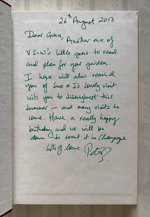 26th August 2013
Dear Grace, Another one of
V S-W's little gems to read
and plan for your garden.
I hope will also remind
you of our lovely visit
with you to Sissinghurst this
summer - and many visits to
come. Have a really happy
birthday and we will be
down to toast it in Champagne
lots of love